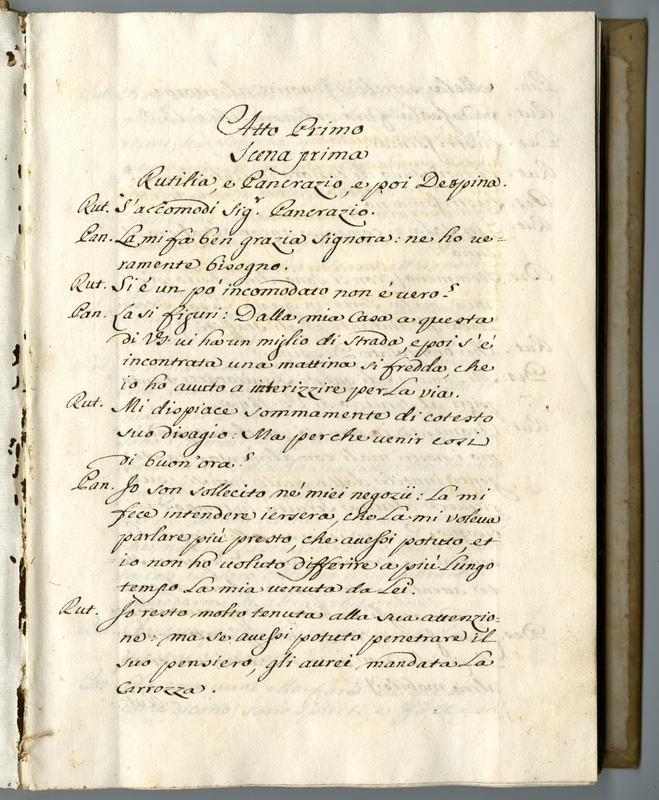 Atto Primo
Scena prima
Rutilia, e Pancrazio, e poi Despina.
Rut. S'accomodi Sig.r Pancrazio.
Pan. La mi fa ben grazia Signora: ne ho ve=
ramente bisogno.
Rut. Si é un pó incomodato non é vero?
Pan. La si figuri: Dalla mia Casa a questa
di VS. vi ha un miglio di strada, e poi s'é
incontrata una mattina si fredda, che
io ho avuto a interizzire per La via.
Rut. Mi dispiace sommamente di cotesto
suo disagio: Ma perche venir cosi
di buon'ora?
Pan. Jo son sollecito né miei negozii: La mi
fece intendere iersera, che La mi voleva
parlare più presto, che avessi potuto, et
io non ho voluto differire a più Lungo
tempo La mia venuta da Lei.
Rut. Jo resto molto tenuta alla sua attenzio=
ne: ma se avessi potuto penetrare il
suo pensiero, gli avrei mandata La
Carrozza.